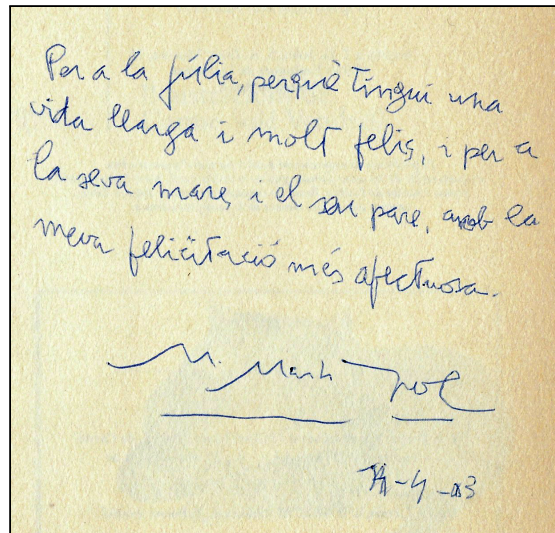 Per a la Júlia, perquè tingui una
vida llarga i molt feliç, i per a
la seva mare, i el seu pare, amb la
meva felicitació més afectuosa.
M. Martí Pol
-4-03